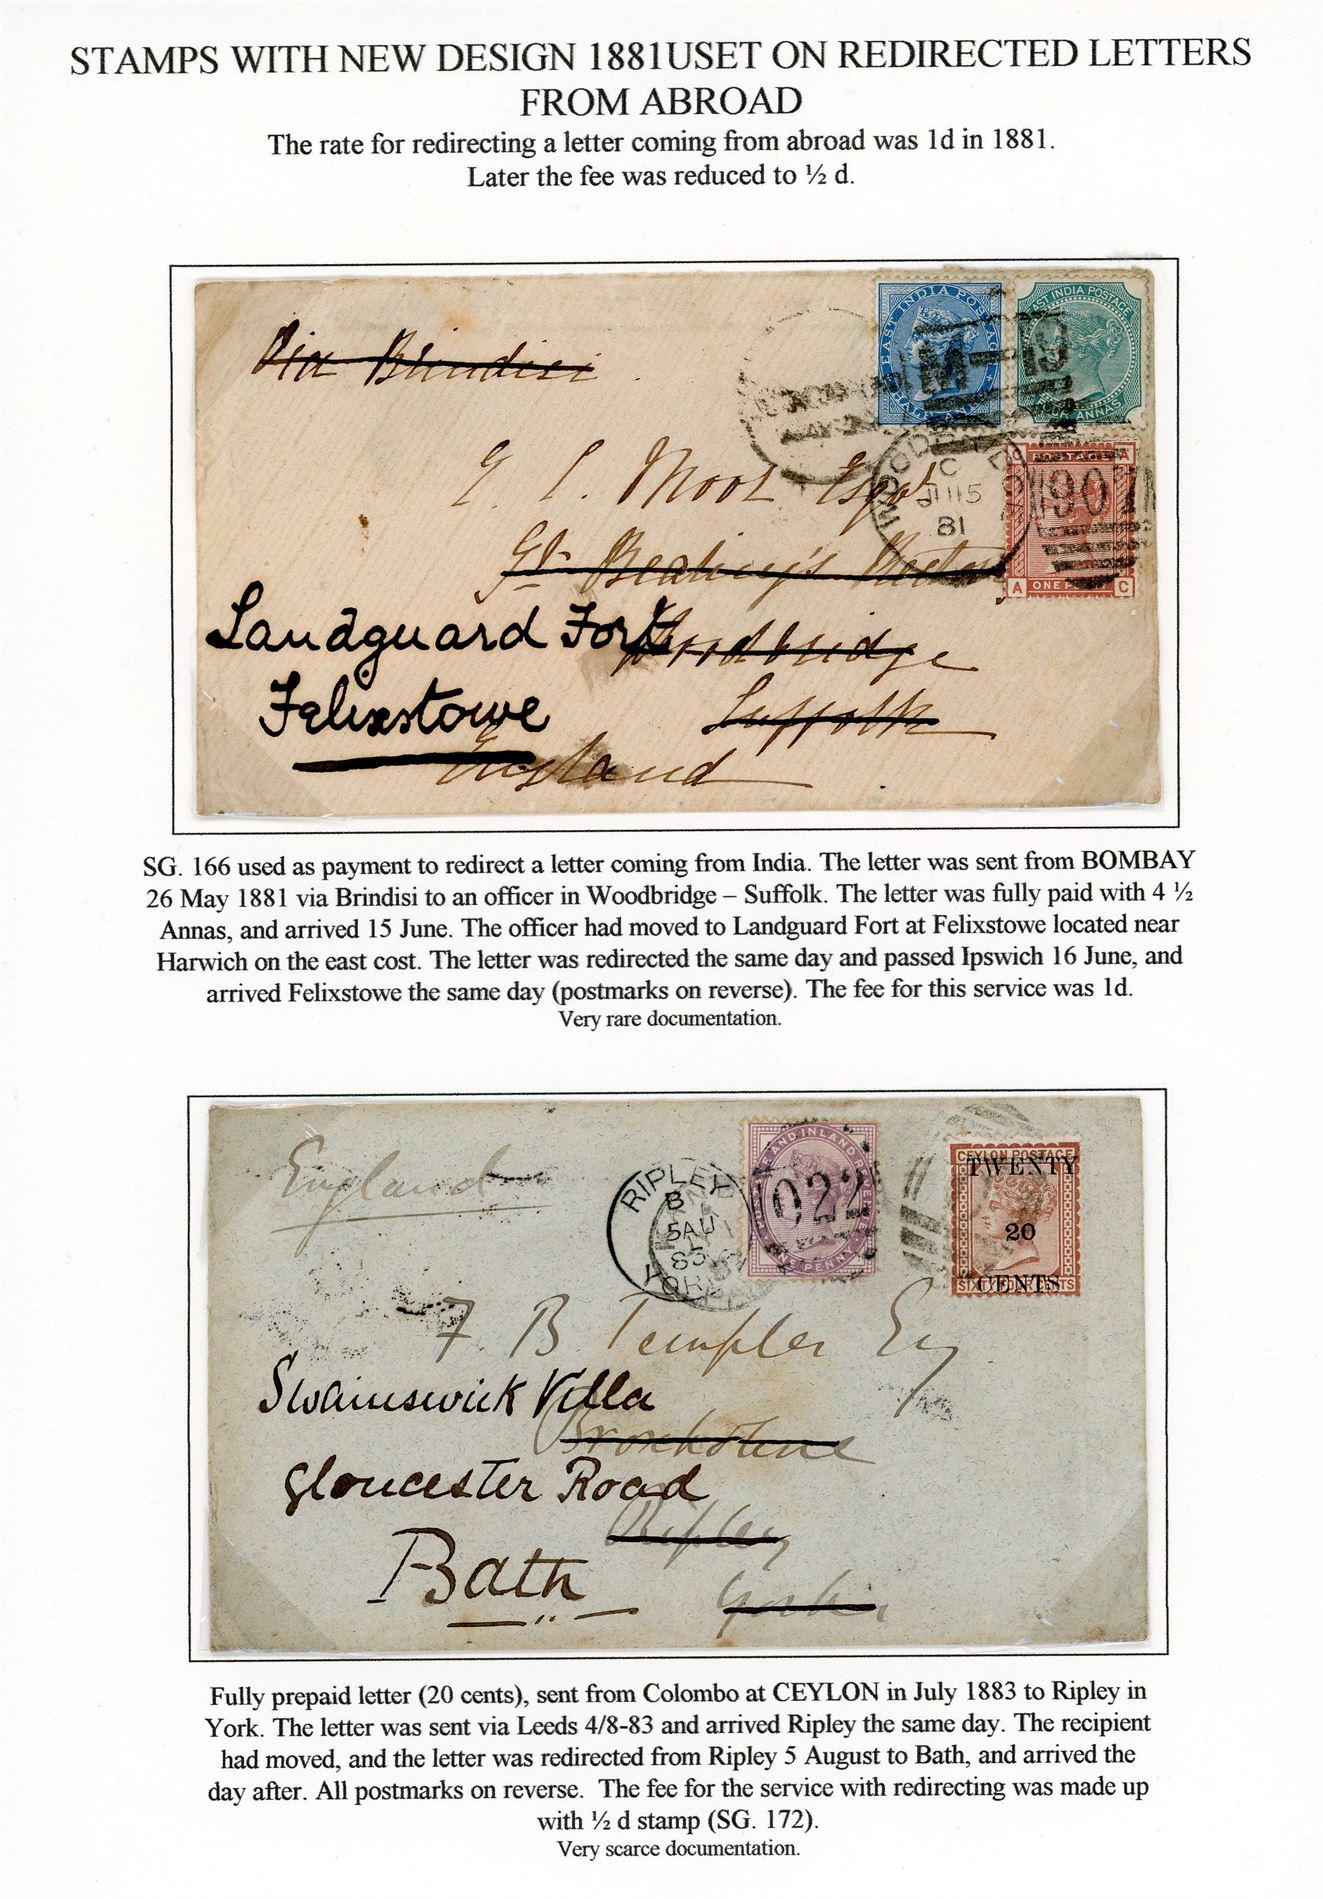 STAMPS WITH NEW DESIGN 1881USET ON REDIRECTED LETTERS
FROM ABROAD
The rate for redirecting a letter coming from abroad was 1d in 1881.
Later the fee was reduced to ½ d.
Via Brindisi
EAST INDIA POSTAGE
HALF ANNA
M-19
EAST INDIA POSTAGE
FOUR ANNAS
WOODBRIDGE
C
JU 15
81
POSTAGE
A
907
A ONE PENNY C
Esqr
Landguard Fort
Woodbridge
Felixstowe
Suffolk
England
SG. 166 used as payment to redirect a letter coming from India. The letter was sent from BOMBAY
26 May 1881 via Brindisi to an officer in Woodbridge – Suffolk. The letter was fully paid with 4 ½
Annas, and arrived 15 June. The officer had moved to Landguard Fort at Felixstowe located near
Harwich on the east cost. The letter was redirected the same day and passed Ipswich 16 June, and
arrived Felixstowe the same day (postmarks on reverse). The fee for this service was 1d.
Very rare documentation.
England
RIPLEY
B
5 AU
83
YORKS
POSTAGE AND INLAND REVENUE
ONE PENNY
022
CEYLON POSTAGE
TWENTY
20
CENTS
SIXTY FOUR CENTS
B Templer Esq
Swainswick Villa
Gloucester Road
Ripley
Bath
Yorks
Fully prepaid letter (20 cents), sent from Colombo at CEYLON in July 1883 to Ripley in
York. The letter was sent via Leeds 4/8-83 and arrived Ripley the same day. The recipient
had moved, and the letter was redirected from Ripley 5 August to Bath, and arrived the
day after. All postmarks on reverse. The fee for the service with redirecting was made up
with ½ d stamp (SG. 172).
Very scarce documentation.